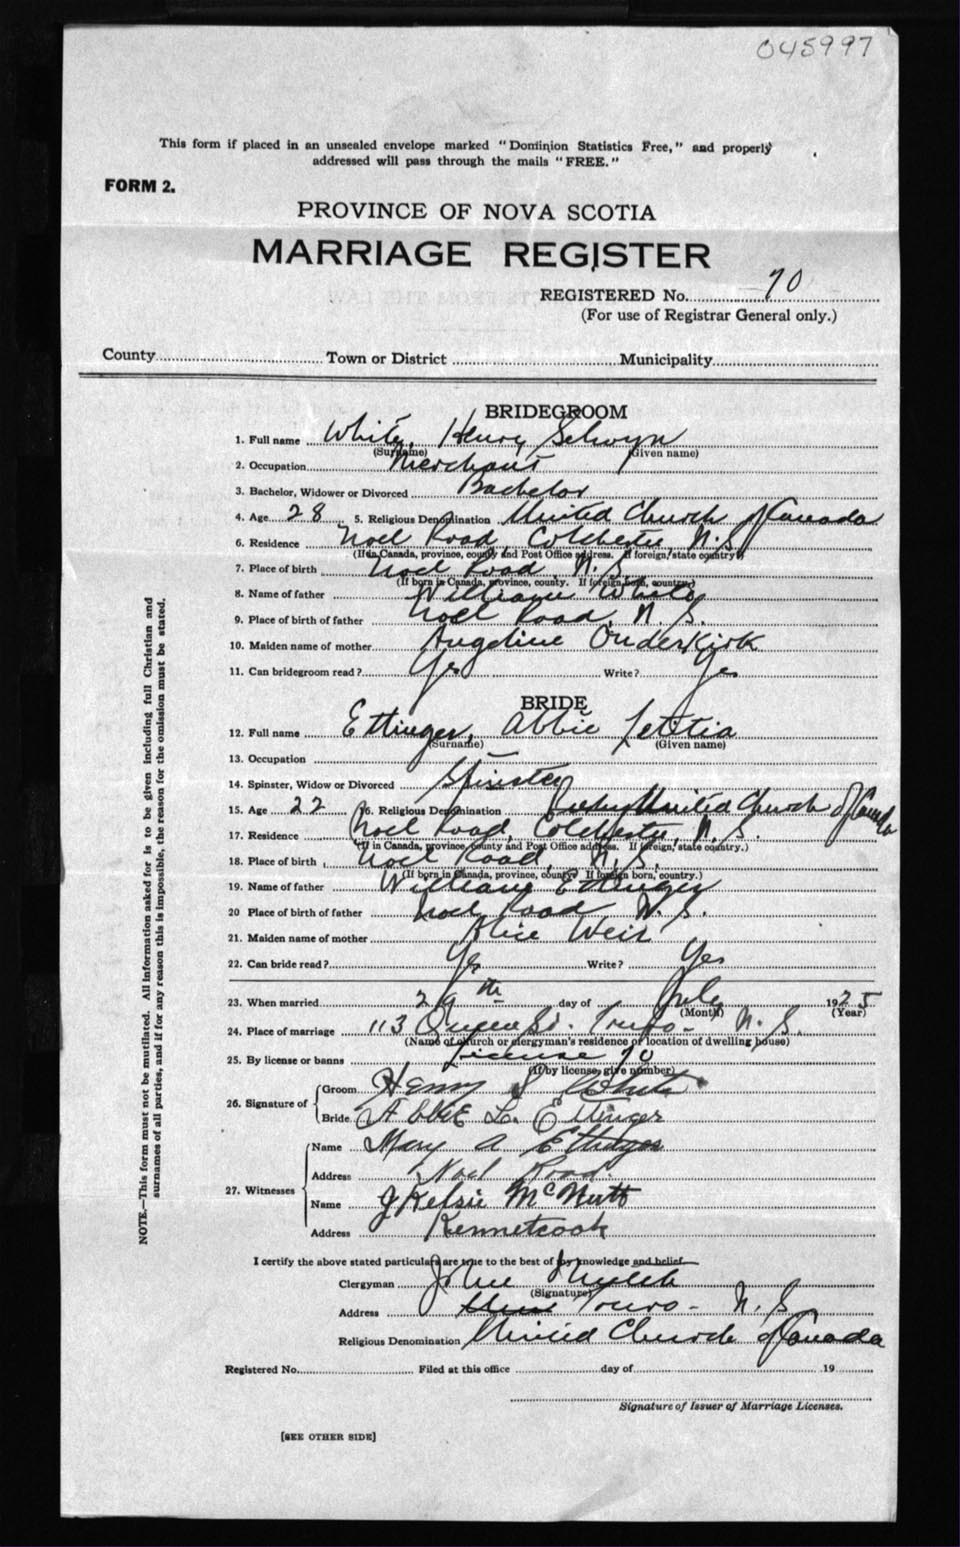 045997
This form if placed in an unsealed envelope marked "Dominion Statistics Free," and properly
addressed will pass through the mails "FREE."
FORM 2.
PROVINCE OF NOVA SCOTIA
MARRIAGE REGISTER
REGISTERED No. 70
(For use of Registrar General only.)
County Town or District Municipality
BRIDEGROOM
1. Full name White, Henry Selwyn
(Surname) (Given name)
2. Occupation Merchant
3. Bachelor, Widower or Divorced Bachelor
4. Age 28 5. Religious Denomination United Church of Canada
6. Residence Noel Road, Colchester N.S.
(If in Canada, province, county and Post Office address. If foreign, state country)
7. Place of birth Noel Road N.S.
(If born in Canada, province, county. If foreign born, country.)
8. Name of father William White
9. Place of birth of father Noel Road, N.S.
10. Maiden name of mother Angeline Onderkirk
11. Can bridegroom read? Yes Write? Yes
BRIDE
12. Full name Ettinger, Abbie Letitia
(Surname) (Given name)
13. Occupation —
14. Spinster, Widow or Divorced Spinster
15. Age 22 16. Religious Denomination United Church of Canada
17. Residence Noel Road, Colchester, N.S.
(If in Canada, province, county and Post Office address. If foreign, state country.)
18. Place of birth Noel Road, N.S.
(If born in Canada, province, county. If foreign born, country.)
19. Name of father William Ettinger
20 Place of birth of father Noel Road N.S.
21. Maiden name of mother Alice Weir
22. Can bride read? Yes Write? Yes
23. When married 29th day of July 1925
(Month) (Year)
24. Place of marriage 113 Queen St. Truro - N.S.
(Name of church or clergyman's residence or location of dwelling house)
25. By license or banns License 70
(If by license, give number)
26. Signature of Groom Henry S White
Bride Abbie L. Ettinger
27. Witnesses Name Mary A Ettinger
Address Noel Road.
Name J Kelsie McNutt
Address Kennetcook
I certify the above stated particulars are true to the best of my knowledge and belief.
Clergyman John
(Signature)
Address Truro - N.S.
Religious Denomination United Church of Canada
Registered No. Filed at this office day of 19
Signature of Issuer of Marriage Licenses.
[SEE OTHER SIDE]
NOTE.—This form must not be mutilated. All information asked for is to be given including full Christian and
surnames of all parties, and if for any reason this is impossible, the reason for the omission must be stated.